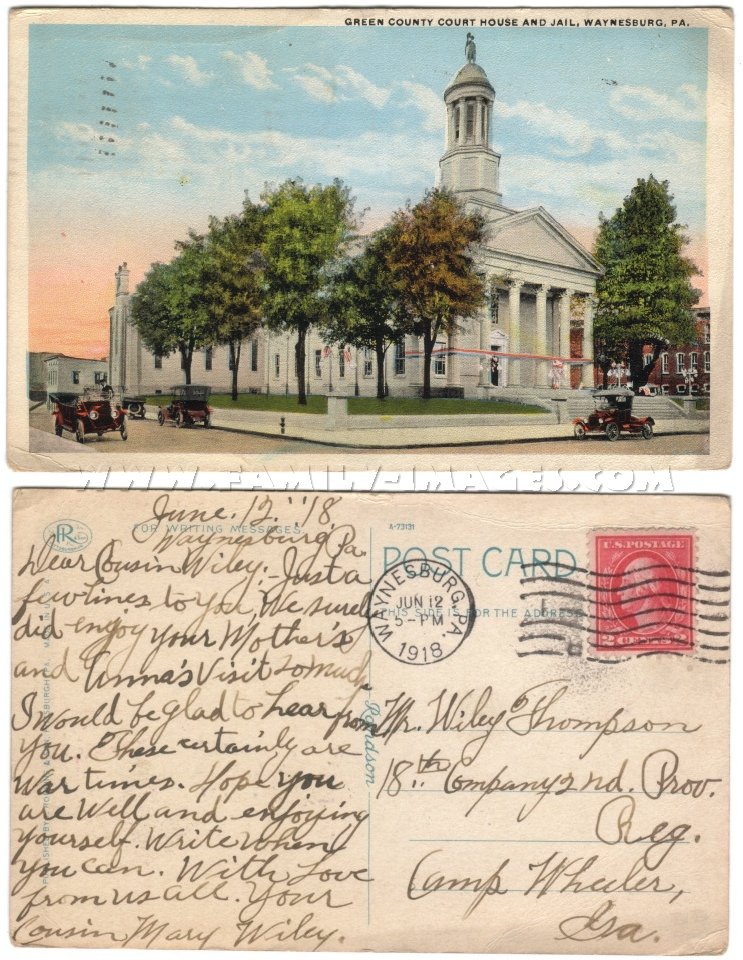 GREEN COUNTY COURT HOUSE AND JAIL, WAYNESBURG, PA.
WWW.FAMILY-IMAGES.COM
June. 12."18
FOR WRITING MESSAGES
Waynesburg, Pa.
Dear Cousin Wiley:- Just a
few lines to you. We sure
did enjoy your Mother's
and Anna's Visit so much.
I would be glad to hear from
you. These certainly are
war times. Hope you
are well and enjoying
yourself. Write when
you can. With Love
from us all. Your
Cousin Mary Wiley.
A-73131
POST CARD
THIS SIDE IS FOR THE ADDRESS
WAYNESBURG, PA.
JUN 12
5-PM
1918
U.S. POSTAGE
2 CENTS 2
Mr. Wiley Thompson
18th Company 2nd. Prov.
Reg.
Camp Wheeler,
Ga.